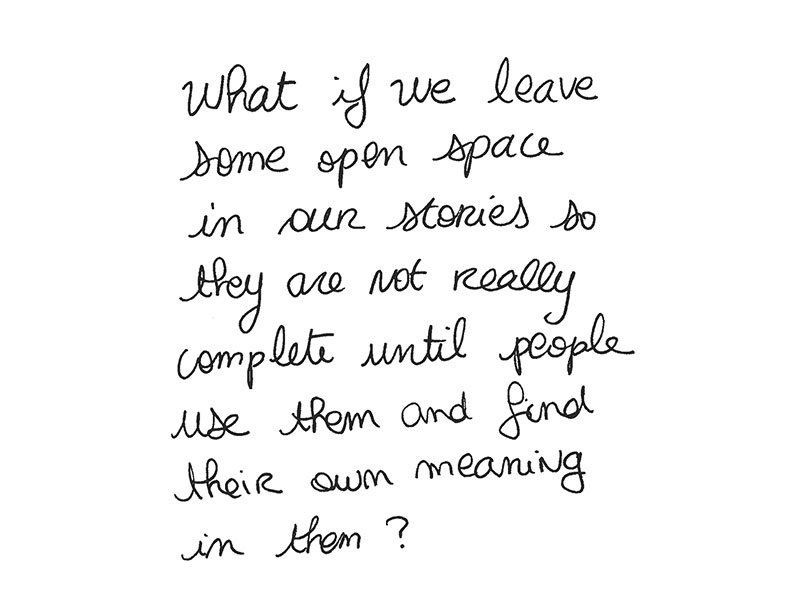 What if we leave
some open space
in our stories so
they are not really
complete until people
use them and find
their own meaning
in them ?